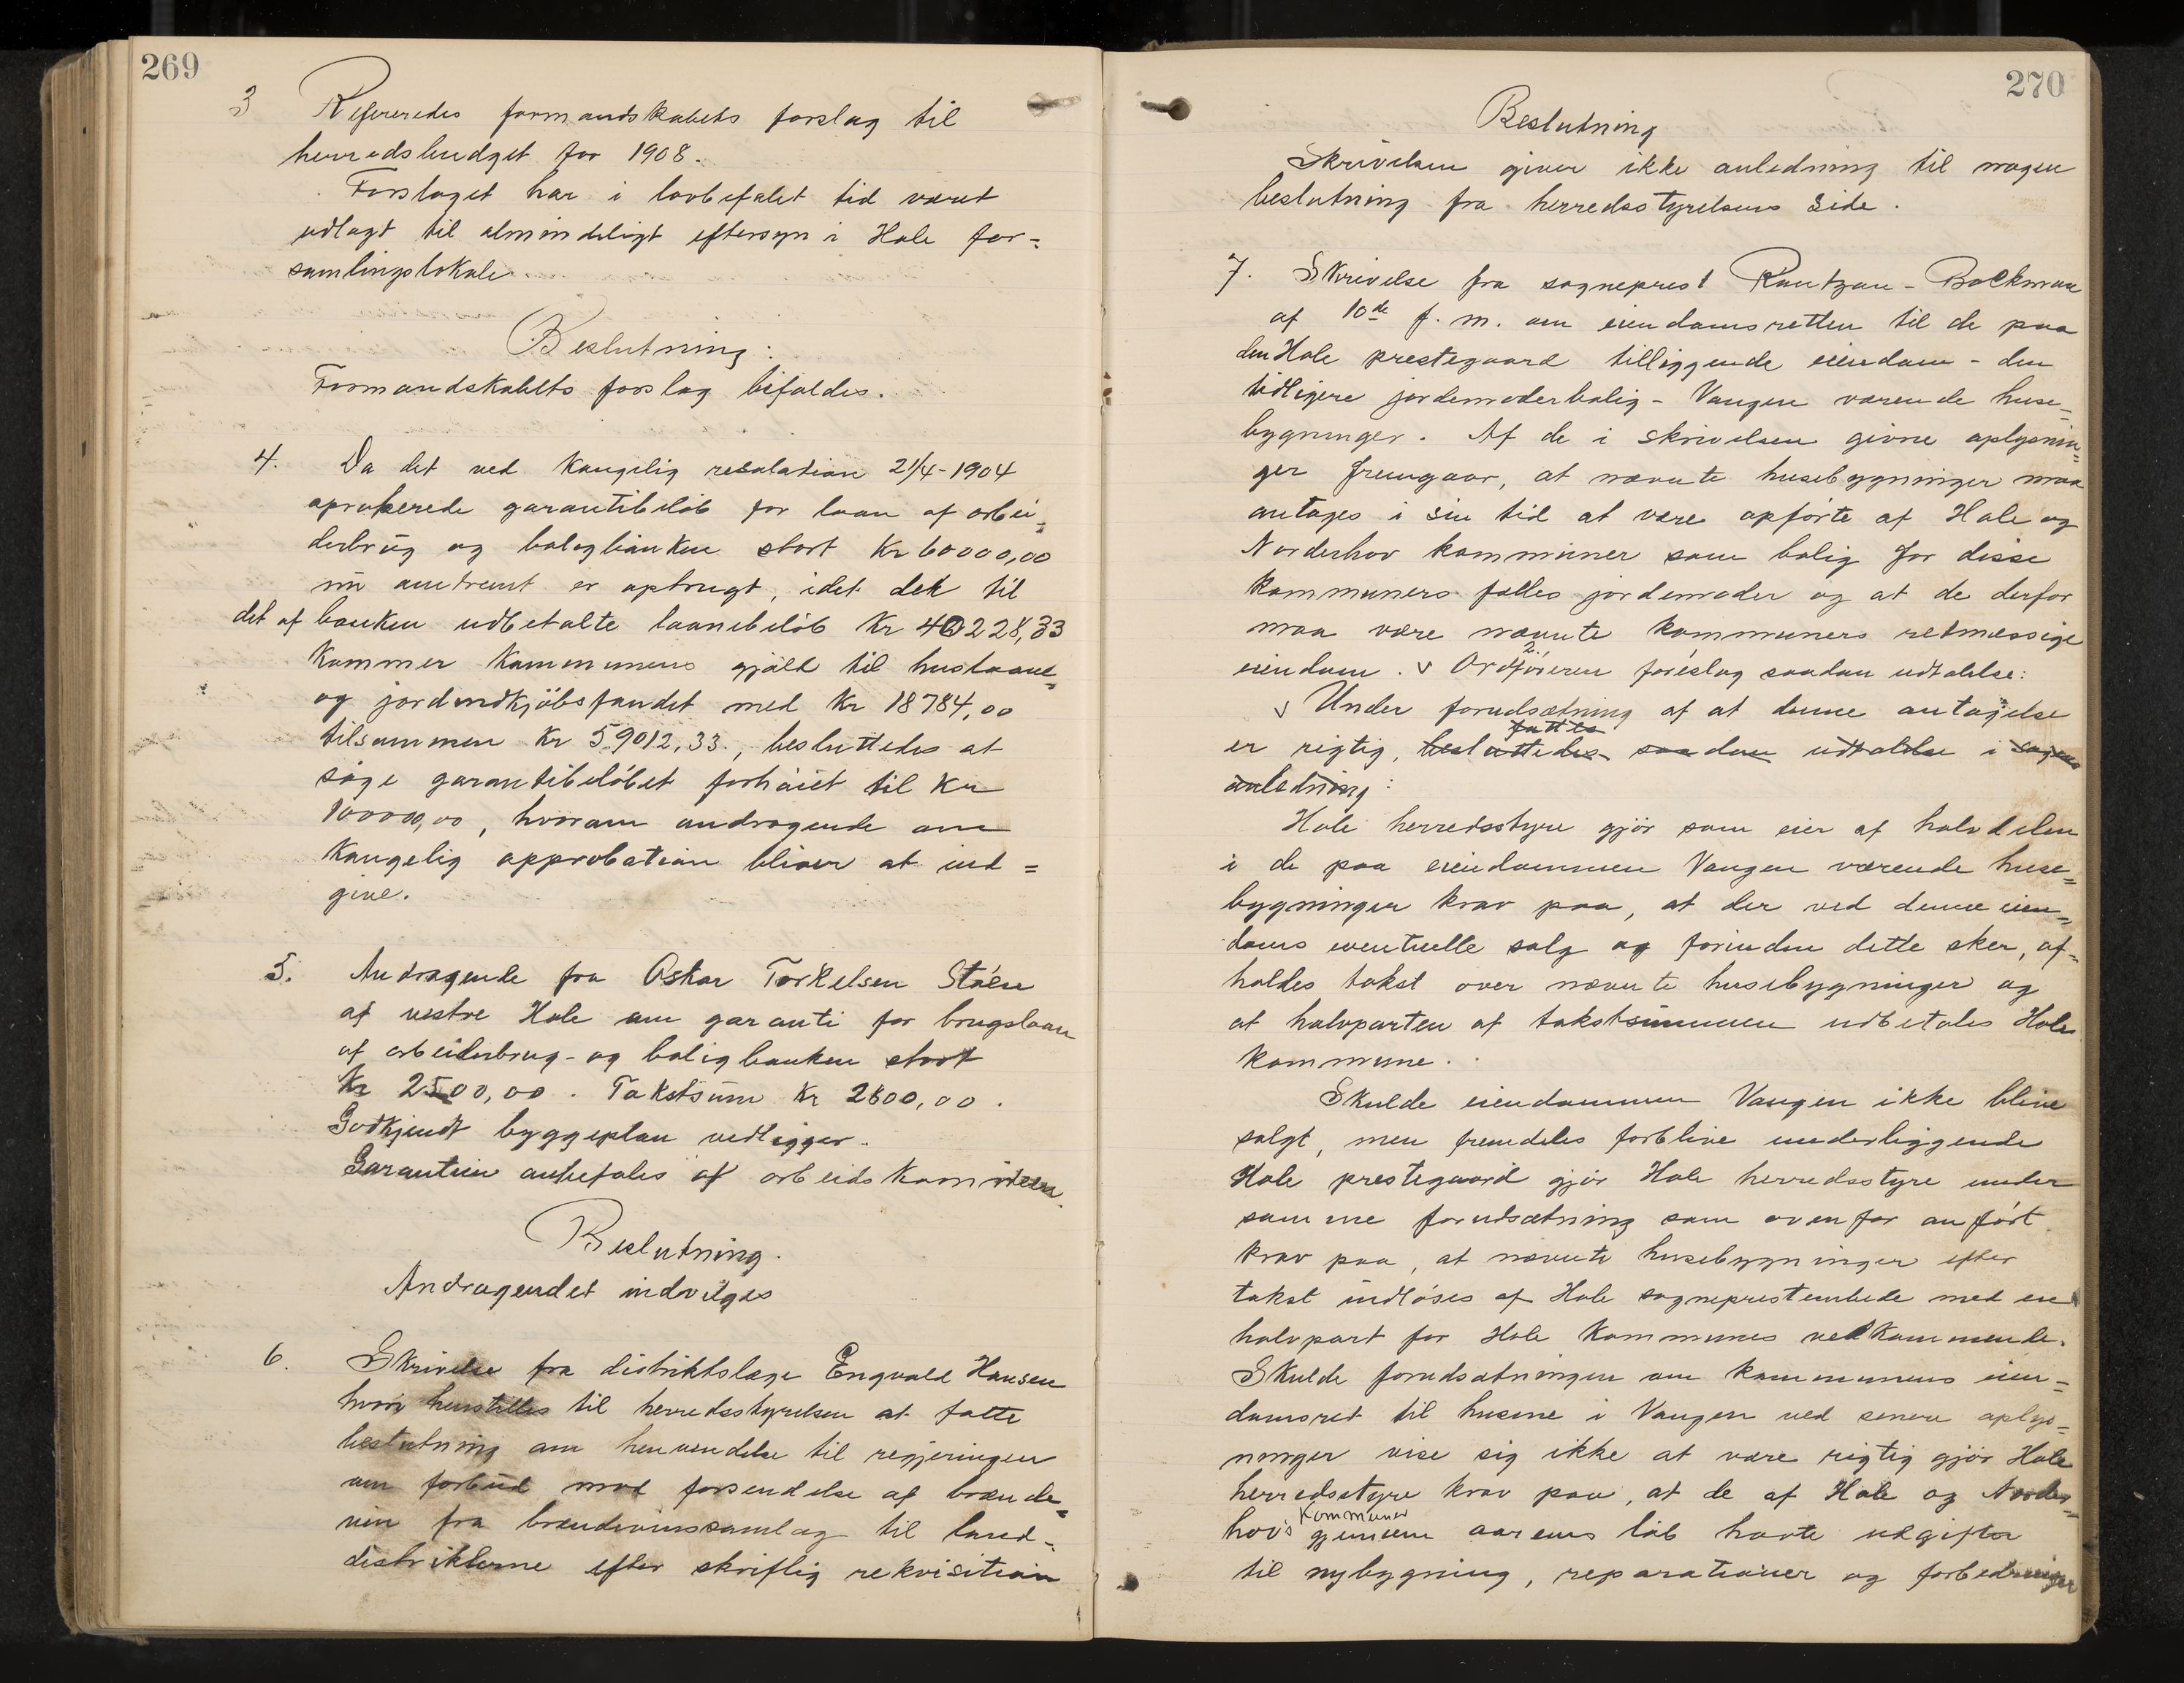 269
3 Refereredes formandskabets forslag til
herredsbudget for 1908.
Forslaget har i lovbefalet tid været
udlagt til almindeligt eftersyn i Hole for=
samlingslokale.
Beslutning:
Formandskabets forslag bifaldes.
4. Da det ved kongelig resolution 21/4-1904
aproberede garantibeløb for laan af arbei=
derbrug og boligbanken stort Kr 60000,00
nu omtrent er opbrugt, idet det til
det af banken udbetalte laanebeløb Kr 40228,33
kommer kommunens gjæld til huslaane=
og jordindkjøbsfondet med Kr 18784,00
tilsammen Kr 59012,33., besluttedes at
søge garantibeløbet forhøiet til Kr
100000,00, hvorom andragende om
kongelig approbation bliver at ind=
give.
5. Andragende fra Oskar Torkelsen Støen
af vestre Hole om garanti for brugslaan
af arbeiderbrug- og boligbanken stort
Kr 2500,00. Takstsum Kr 2800,00.
Godkjendt byggeplan vedligger.
Garantien anbefales af arbeidskomiteen.
Beslutning.
Andragendet indvilges
6. Skrivelse fra distriktslæge Engvald Hansen
hvori henstilles til herredsstyrelsen at fatte
beslutning om henvendelse til regjeringen
om forbud mod forsendelse af brænde=
vin fra brændevinssamlag til land=
distrikterne efter skriftlig rekvisition
270
Beslutning
Skrivelsen giver ikke anledning til nogen
beslutning fra herredsstyrelsens side.
7. Skrivelse fra sogneprest Rantzau-Bøckman
af 10de f. m. om eiendomsretten til de paa
den Hole prestegaard tilliggende eiendom - den
tidligere jordemoderbolig - Vangen værende huse=
bygninger. Af de i skrivelsen givne oplysnin=
ger fremgaar, at nævnte husebygninger maa
antages i sin tid at være opførte af Hole og
Norderhov kommuner som bolig for disse
kommuners fælles jordemoder og at de derfor
maa være nævnte kommuners retmessige
eiendom. v 2. Ordføreren foreslog saadan udtalelse:
v Under forudsætning af at denne antagelse
fattes
er rigtig, besluttedes saadan udtalelse i sagens
anledning:
Hole herredsstyre gjør som eier af halvdelen
i de paa eiendommen Vangen værende huse=
bygninger krav paa, at der ved denne eien=
doms eventuelle salg og forinden dette sker, af=
holdes takst over nævnte husebygninger og
at halvparten af takstsummen udbetales Hole
kommune.
Skulde eiendommen Vangen ikke blive
solgt, men fremdeles forblive underliggende
Hole prestegaard gjør Hole herredsstyre under
samme forudsætning som ovenfor anført
krav paa, at nævnte husebygninger efter
takst indløses af Hole sogneprestembede med en
halvpart for Hole kommunes vedkommende.
Skulde forudsætningen om kommunens eien=
domsret til husene i Vangen ved senere oplys=
ninger vise sig ikke at være rigtig gjør Hole
herredsstyre krav paa, at de af Hole og Norder=
kommuner
hov's gjennem aarenes løb havte udgifter
til nybygning, reparationer og forbedringer